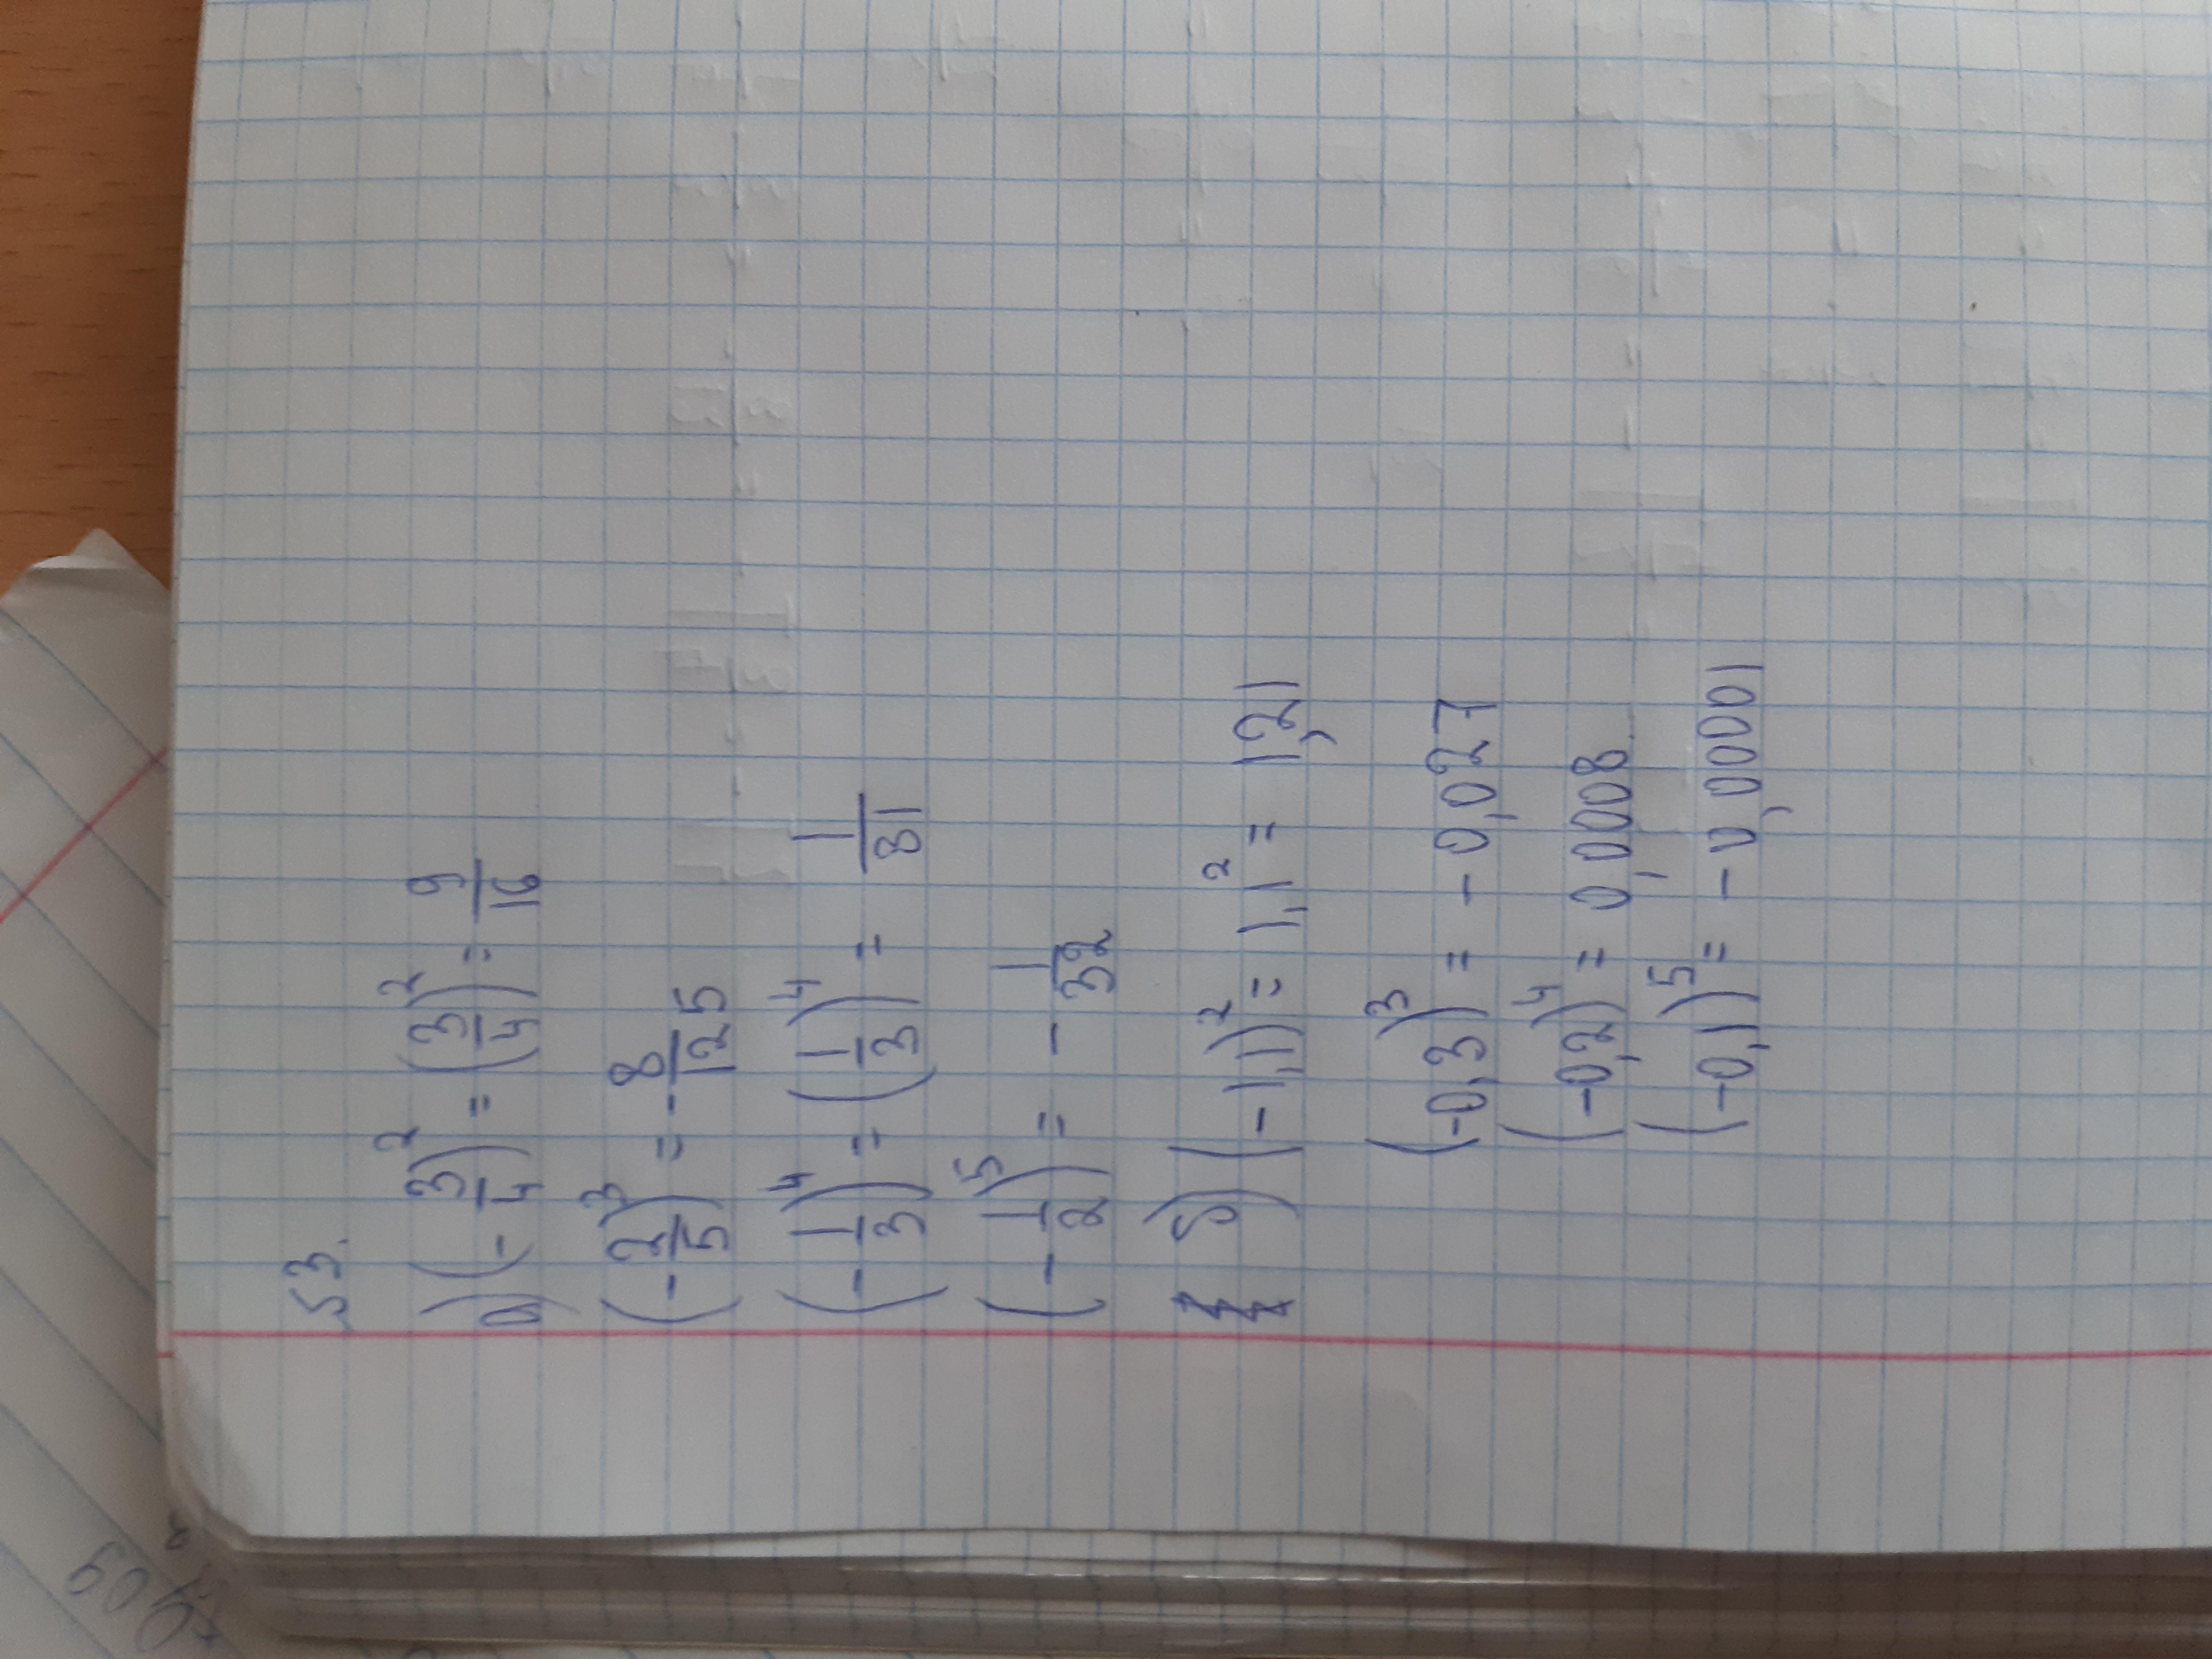 53.
а) (-3/4)² = (3/4)² = 9/16
(-2/5)³ = -8/125
(-1/3)⁴ = (1/3)⁴ = 1/81
(-1/2)⁵ = -1/32
б) (-1,1)² = 1,1² = 1,21
(-0,3)³ = -0,027
(-0,2)⁴ = 0,0008
(-0,1)⁵ = -0,00001